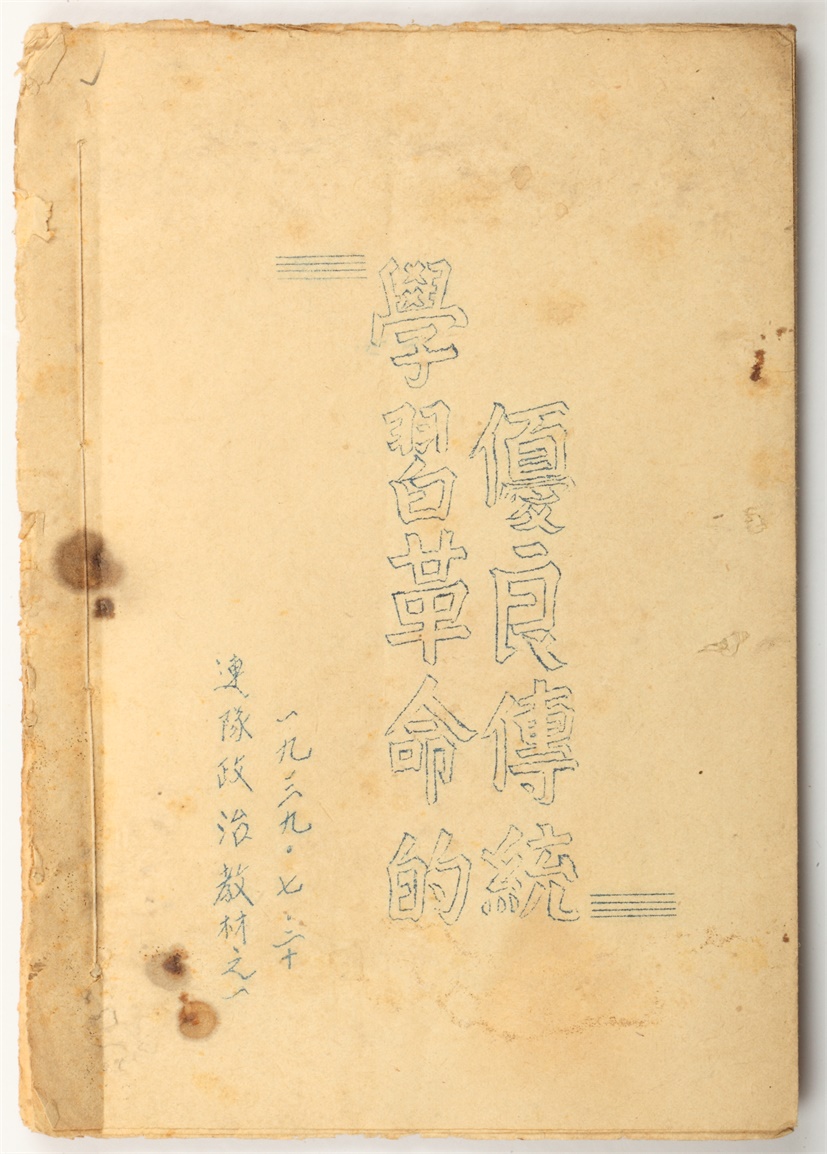 學習革命的
優良傳統
連隊政治教材之一
一九三九·七·二十